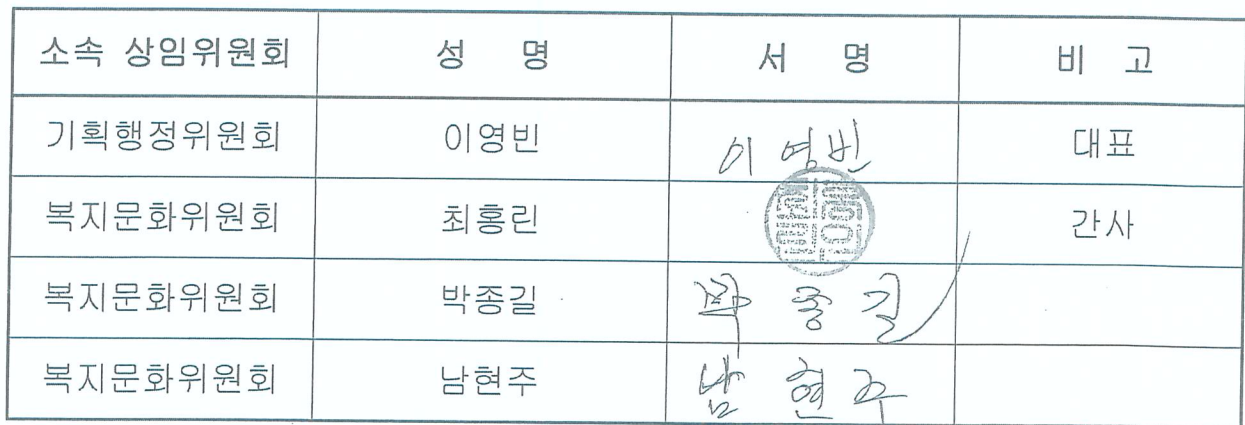 소속 상임위원회 성 명 서 명 비 고
기획행정위원회 이영빈 이영빈 대표
복지문화위원회 최홍린 간사
복지문화위원회 박종길 박종길
복지문화위원회 남현주 남현주